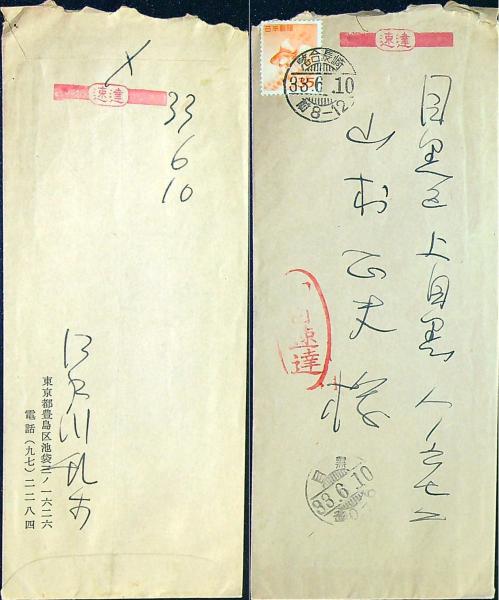 速達
33
6
10
江戸川乱歩
東京都豊島区池袋三ノ一六二六
電話(九七)二二八四
速達
日本郵便
35
落合長崎
33.6.10
前8-12
目黒区上目黒八ノ五七二
山村正夫様
速達
目黒
33.6.10